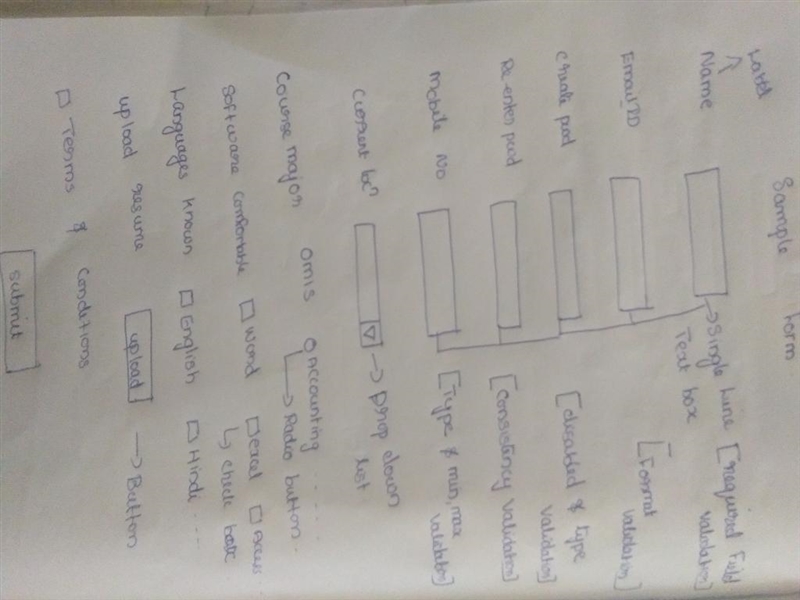 Sample Form
Label
Name → Single Line Text box [required Field validation]
Email ID [Format validation]
Create pwd [disabled & type validation]
Re-enter pwd [Consistency validation]
Mobile No [Type & min, max validation]
Current → Drop down list
Course major O MIS O Accounting ......
→ Radio button..
Software comfortable □ Word □ excel □ Access..
↳ check box
Languages known □ English □ Hindi ....
upload resume upload → Button
□ Terms & Conditions
submit